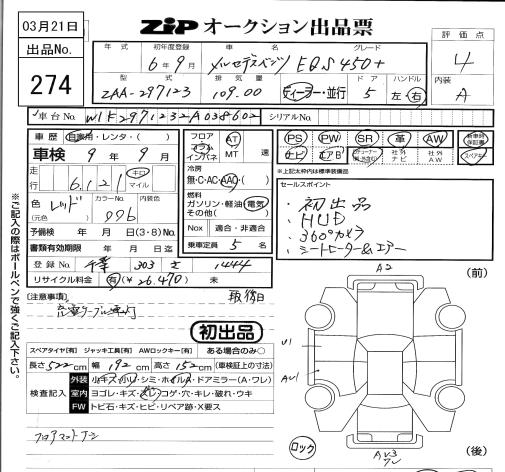 03月21日
ZIP オークション出品票
出品No.
274
年式 初年度登録 車名 グレード
6年9月 メルセデスベンツ EQS450+
型式 排気量 ドア ハンドル
ZAA-297123 109.00 ディーラー・並行 5 左・右
評価点
4
内装
A
車台No. W1K2971232A038602 シリアルNo.
車歴 自家用・レンタ・( )
車検 9年9月
走行 6,121 キロ マイル
色 レッド (元色) カラーNo. 996 内装色
予備検 年 月 日(3・8)No.
書類有効期限 年 月 日迄
登録No. 千葉 303 1444
リサイクル料金 有(¥26,470) 未
フロア インパネ AT MT 速
冷房
無・C・AC・AAC・( )
燃料
ガソリン・軽油・電気
その他( )
Nox 適合・非適合
乗車定員 5 名
PS PW SR 革 AW 新車時保証書
ナビ エアB 社外ナビ 社外AW スペアキー
※上記太枠内は標準装備品
セールスポイント
・初出品
・HUD
・360°カメラ
・シートヒーター&エアー
(注意事項)
充電ケーブル車灯
初出品
スペアタイヤ[有] ジャッキ工具[有] AWロックキー[有] ある場合のみ○
長さ522cm 幅192cm 高さ152cm (車検証上の寸法)
検査記入
外装 小キズ・小凹・シミ・ホイルA・ドアミラー(A・ワレ)
室内 ヨゴレ・キズ・スレ・コゲ・穴・キレ・破れ・ウキ
FW トビ石・キズ・ヒビ・リペア跡・X要ス
フロアマットナシ
※ご記入の際はボールペンで強くご記入下さい。
A2
(前)
U1
AU1
ロック
(後)